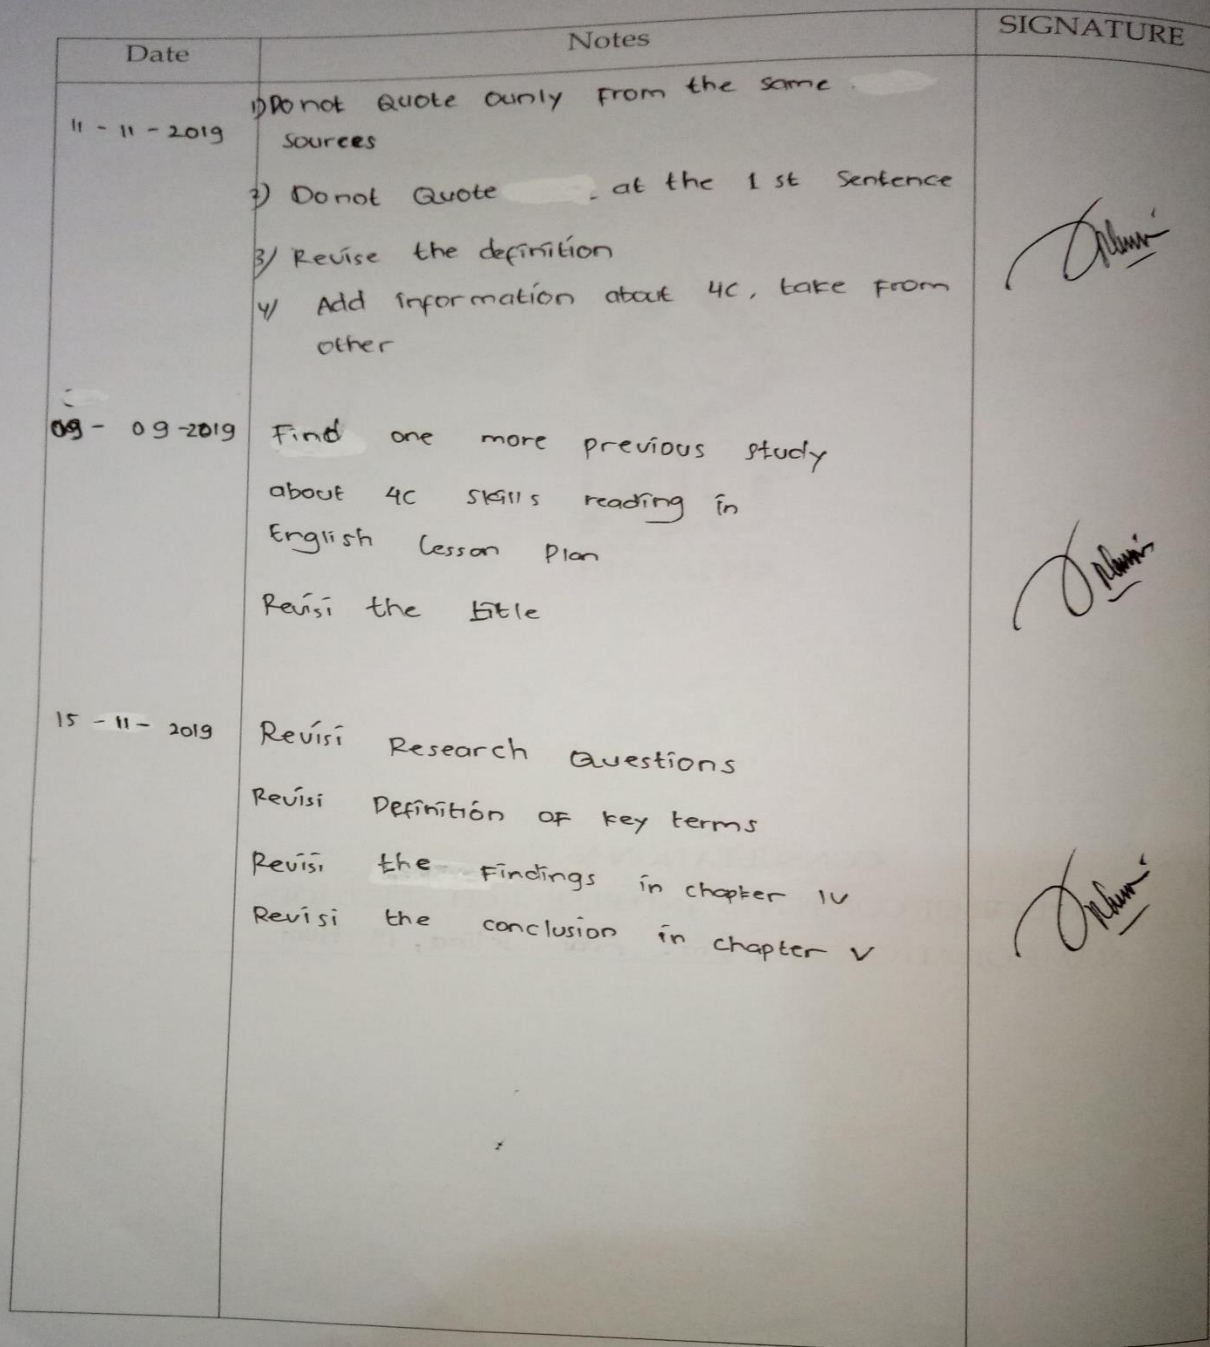 Date Notes SIGNATURE
11 - 11 - 2019 1) Do not Quote ounly From the same
sources
2) Do not Quote at the 1 st Sentence
3) Revise the definition
4) Add information about 4C, take From
other
09 - 09 - 2019 Find one more previous study
about 4C skills reading in
English Lesson Plan
Revisi the title
15 - 11 - 2019 Revisi Research Questions
Revisi Definition OF key terms
Revisi the Findings in chapter IV
Revisi the conclusion in chapter V